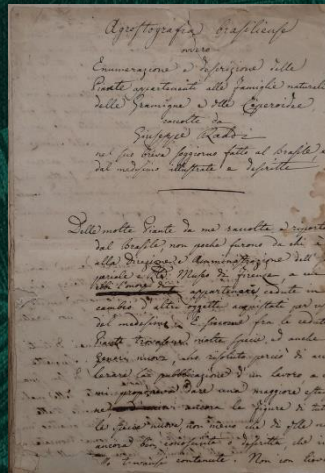 Agrostografia Brasiliense
ovvero
Enumerazione e descrizione delle
Piante appartenenti alle famiglie naturali
delle Gramigne e delle Ciperoidee
raccolte da
Giuseppe Raddi
nel suo breve soggiorno fatto al Brasile, e
dal medesimo illustrate e descritte
Delle molte Piante da me raccolte, e riportate
dal Brasile, non poche furono da chi è
alla Direzione e Amministrazione dell'
Museo di Firenze, a cui
appartenere, cedute in
cambio d'altri oggetti acquistati per
del medesimo. E siccome fra le cedute
Piante trovavansi molte specie ed anche
Generi nuovi, ho risoluto perciò di
la pubblicazione d'un lavoro a
dare una maggiore
ancora le figure di
le specie nuove, non meno che di altre
ancora ben conosciute o descritte che
contenute. Non con